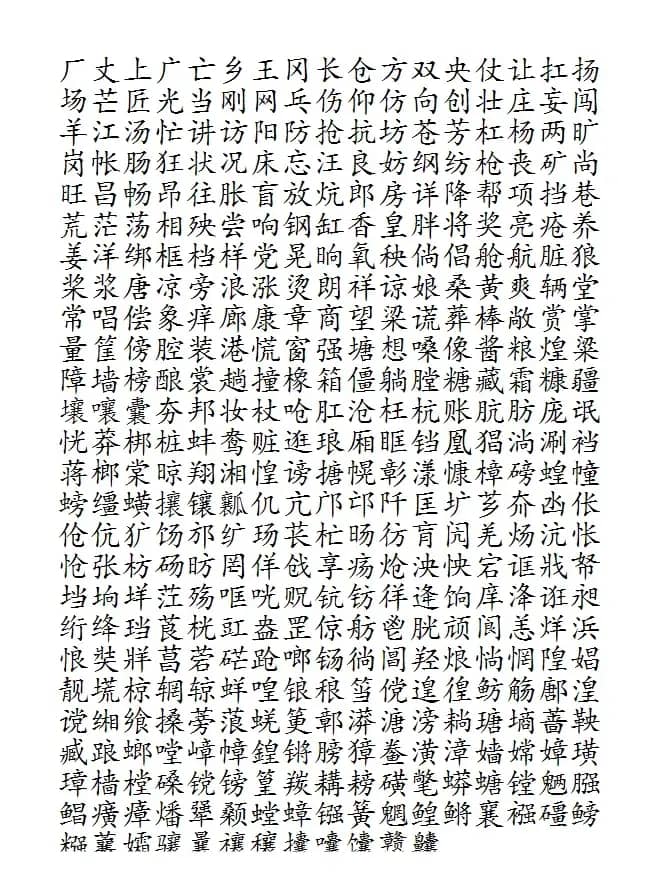 厂丈上广亡乡王冈长仓方双央仗让扛扬
场芒匠光当刚网乓伤仰仿向创壮庄妄闯
羊江汤忙讲访阳防抢抗坊苍芳杠杨两旷
岗帐肠狂状况床忘汪良妨纲纺枪丧矿尚
旺昌畅昂往胀盲放炕郎房详降帮项挡巷
荒茫荡相殃尝响钢缸香皇胖将奖亮疮养
姜洋绑框档样党晃晌氧秧倘倡舱航脏狼
桨浆唐凉旁浪涨烫朗祥谅娘桑黄爽辆堂
常唱偿象痒廊康章商望梁谎葬棒敞赏掌
量筐傍腔装港慌窗强塘想嗓像酱粮煌粱
障墙榜酿裳趟撞橡箱僵躺膛糖藏霜糠疆
壤嚷囊夯邦妆杖呛肛沧枉杭账肮肪庞氓
恍莽梆桩蚌鸯赃逛琅厢眶铛凰猖淌涮裆
蒋榔棠晾翔湘惶谤搪幌彰漾慷樟磅蝗幢
螃缰蟥攘镶瓤仉亢邝邙阡匡圹芗夼凼伥
伧伉犷饧邡纩玚苌杧旸彷肓闶羌炀沆怅
怆张枋砀昉罔佯戗享疡炝泱怏宕诓戕帑
垱垧垟茳殇哐咣贶钪钫徉逄饷庠洚诳昶
绗绛珰莨桄豇盎罡倞舫鬯胱颃阆恙烊浜
悢奘牂菖菪硭跄啷铴徜阊羟烺惝惘隍娼
靓塃椋辋辌蛘喤锒稂筜傥遑徨鲂觞鄌湟
谠缃飨搡蒡蒗蜣筻鄣漭溏滂耥瑭墒蔷鞅
臧踉螂嘡嶂幛锽锵膀獐鲞潢漳嫱嫦嫜璜
璋樯樘磉镋镑篁羰耩耪磺氅蟒螗镗魉膙
鲳癀瘴燔犟颡螳蟑镪簧魍鳇鳉襄襁礓鳑
糨蘘孀骧曩禳穰攮囔馕赣鳕